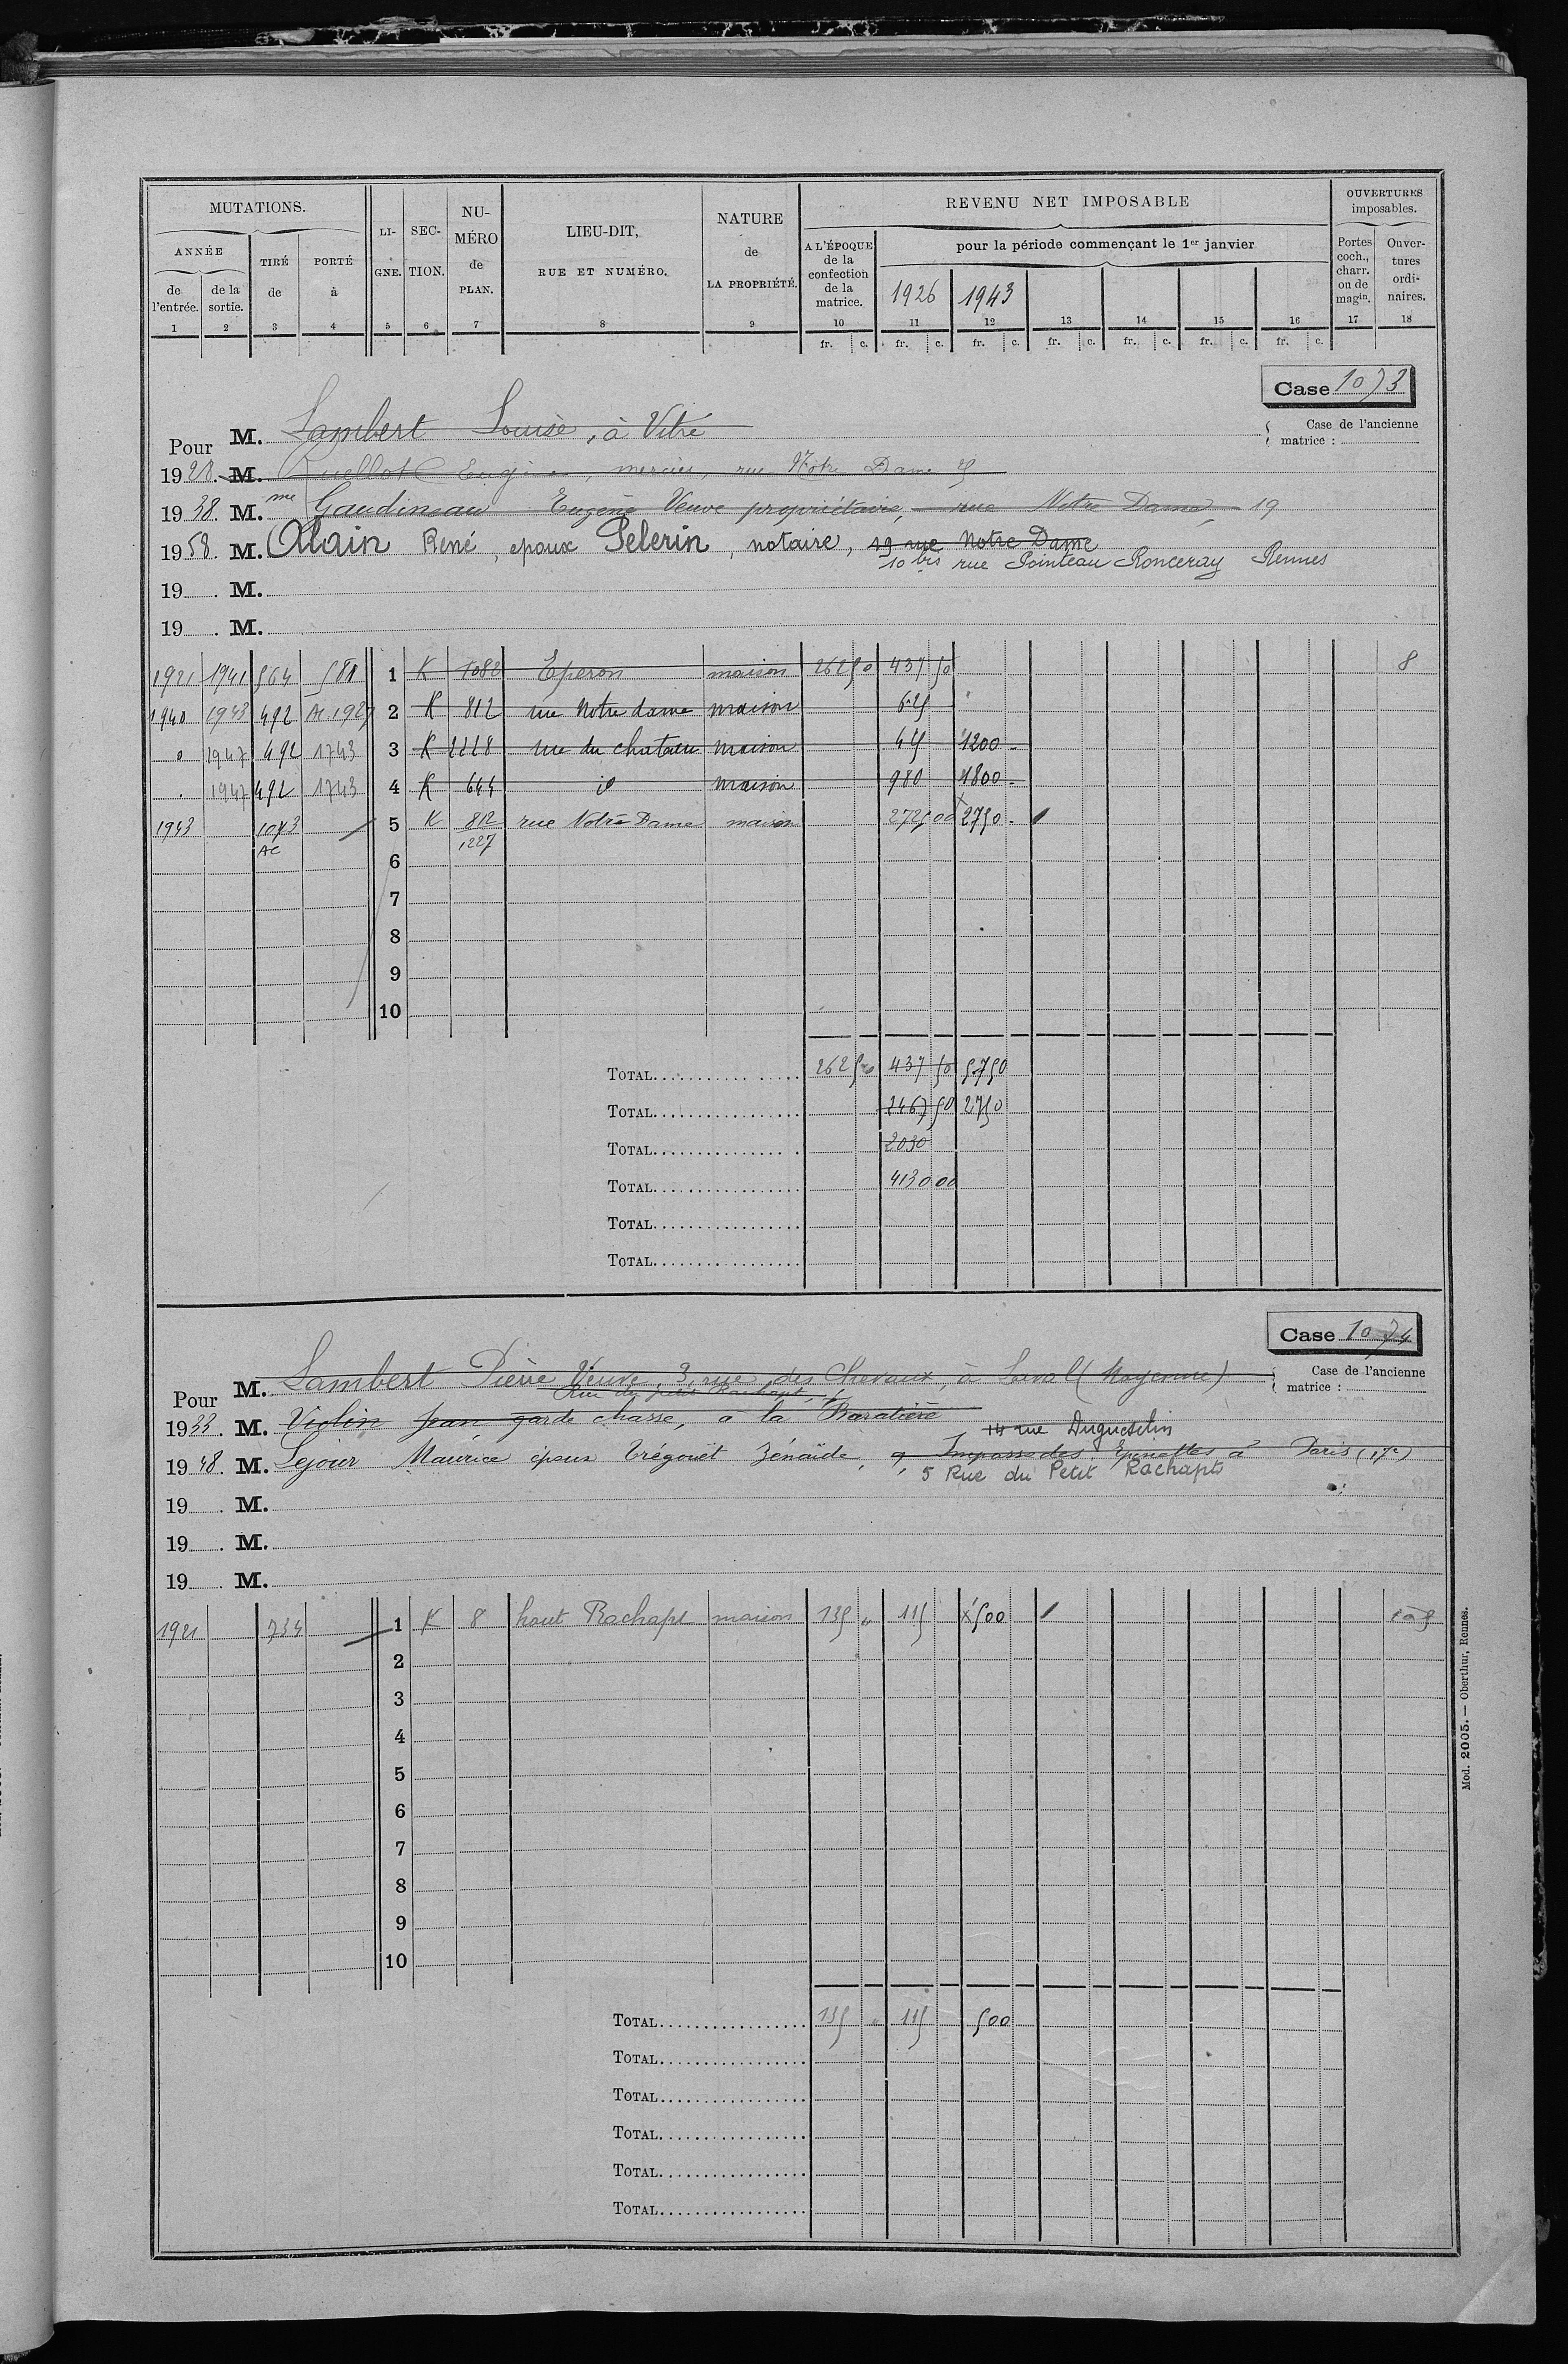 MUTATIONS.
ANNÉE
de l'entrée.
de la sortie.
TIRÉ de
PORTÉ à
LI-GNE.
SEC-TION.
NU-MÉRO de PLAN.
LIEU-DIT, RUE ET NUMÉRO.
NATURE de LA PROPRIÉTÉ.
REVENU NET IMPOSABLE
A L'ÉPOQUE de la confection de la matrice.
pour la période commençant le 1er janvier
1926 1943
OUVERTURES imposables.
Portes coch., charr. ou de magin.
Ouver-tures ordi-naires.
1 2 3 4 5 6 7 8 9 10 11 12 13 14 15 16 17 18
fr. c. fr. c. fr. c. fr. c. fr. c. fr. c. fr. c.
Case 1073
Pour M. Lambert Louise, à Vitré
Case de l'ancienne matrice :
1928. M. Ruellot Eugène, mercier, rue Notre Dame
1938. M. me Gaudineau Eugène Veuve propriétaire, rue Notre Dame, 19
1958. M. Alain René, epoux Pelerin, notaire, 19 rue Notre Dame
10 bis rue Pointeau Ronceray Rennes
19 . M.
19 . M.
1921 1941 564 581 1 K 1082 Eperon maison 262 50 437 50 8
1940 1943 492 Ac. 1927 2 K 812 rue Notre dame maison 625
" 1947 492 1743 3 K 1118 rue du chateau maison 425 1200 -
" 1947 492 1743 4 K 644 id maison 980 1800 -
1943 1073 5 K 812 rue Notre Dame maison 2725 00 2750 -
AC 1227
6
7
8
9
10
TOTAL 262 50 437 50 5750
TOTAL 2467 50 2750
TOTAL 2030
TOTAL 4130 00
TOTAL
TOTAL
Case 1074
Pour M. Lambert Pierre Veuve, 3, rue des Chevaux, à Laval (Mayenne)
Case de l'ancienne matrice :
Rue du petit Rachapt,
1933. M. Violin Jean, garde chasse, à la Baratière
14 rue Duguesclin
1948. M. Sejour Maurice époux Trégouët Zénaïde, 9, Impasse des Epinettes à Paris (17e)
5 Rue du Petit Rachapts
19 . M.
19 . M.
19 . M.
1921 734 1 K 8 haut Rachapt maison 135 " 115 x 500
2
3
4
5
6
7
8
9
10
TOTAL 135 " 115 500
TOTAL
TOTAL
TOTAL
TOTAL
TOTAL
Mod. 2005. — Oberthur, Rennes.